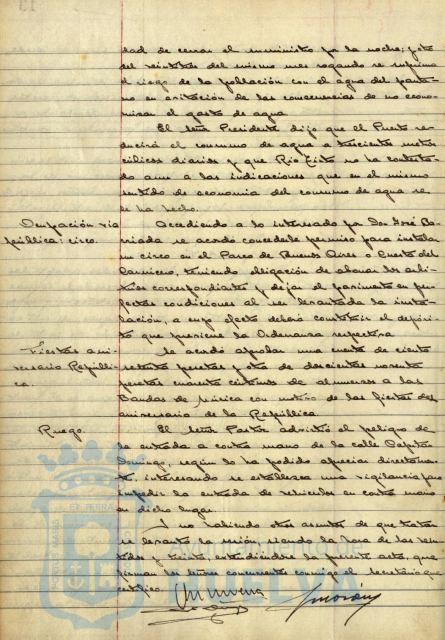 dad de cerrar el suministro por la noche; y otro
del veintitres del mismo mes rogando se suprima
el riego de la población con el agua del panta-
no en evitación de las consecuencias de no econo-
mizar el gasto de agua
El señor Presidente dijo que el Puerto re-
ducirá el consumo de agua a trescientos metros
cúbicos diarios y que Rio Tinto no ha contesta-
do aun a las indicaciones que en el mismo
sentido de economia del consumo de agua se
le ha hecho.
Ocupación via
pública: circo.
Accediendo a lo interesado por Don José Ba-
rriada se acordo concederle permiso para instalar
un circo en el Paseo de Buenos Aires o Cuesta del
Carnicero, teniendo obligación de abonar los arbi-
trios correspondientes y dejar el pavimento en per-
fectas condiciones al ser levantada la insta-
lación, a cuyo efecto deberá constituir el depósi-
to que previene la Ordenanza respectiva
Fiestas ani-
versario Repúbli-
ca.
Se acordo aprobar una cuenta de ciento
setenta pesetas y otra de doscientas noventa
pesetas cuarenta céntimos de almuerzos a las
Bandas de música con motivo de las fiestas del
aniversario de la República
Ruego.
El señor Pastor advirtió el peligro de
la entrada a contra mano de la calle Capitan
Domingo, según lo ha podido apreciar directamen-
te, interesando se establezca una vigilancia para
impedir la entrada de vehiculos en contra mano
en dicho lugar.
Y no habiendo otros asuntos de que tratar
se levanto la sesión, siendo la hora de las vein-
tidos y treinta, extendiendose la presente acta, que
firman los señores concurrentes conmigo el secretario que
certifico.
HUELVA